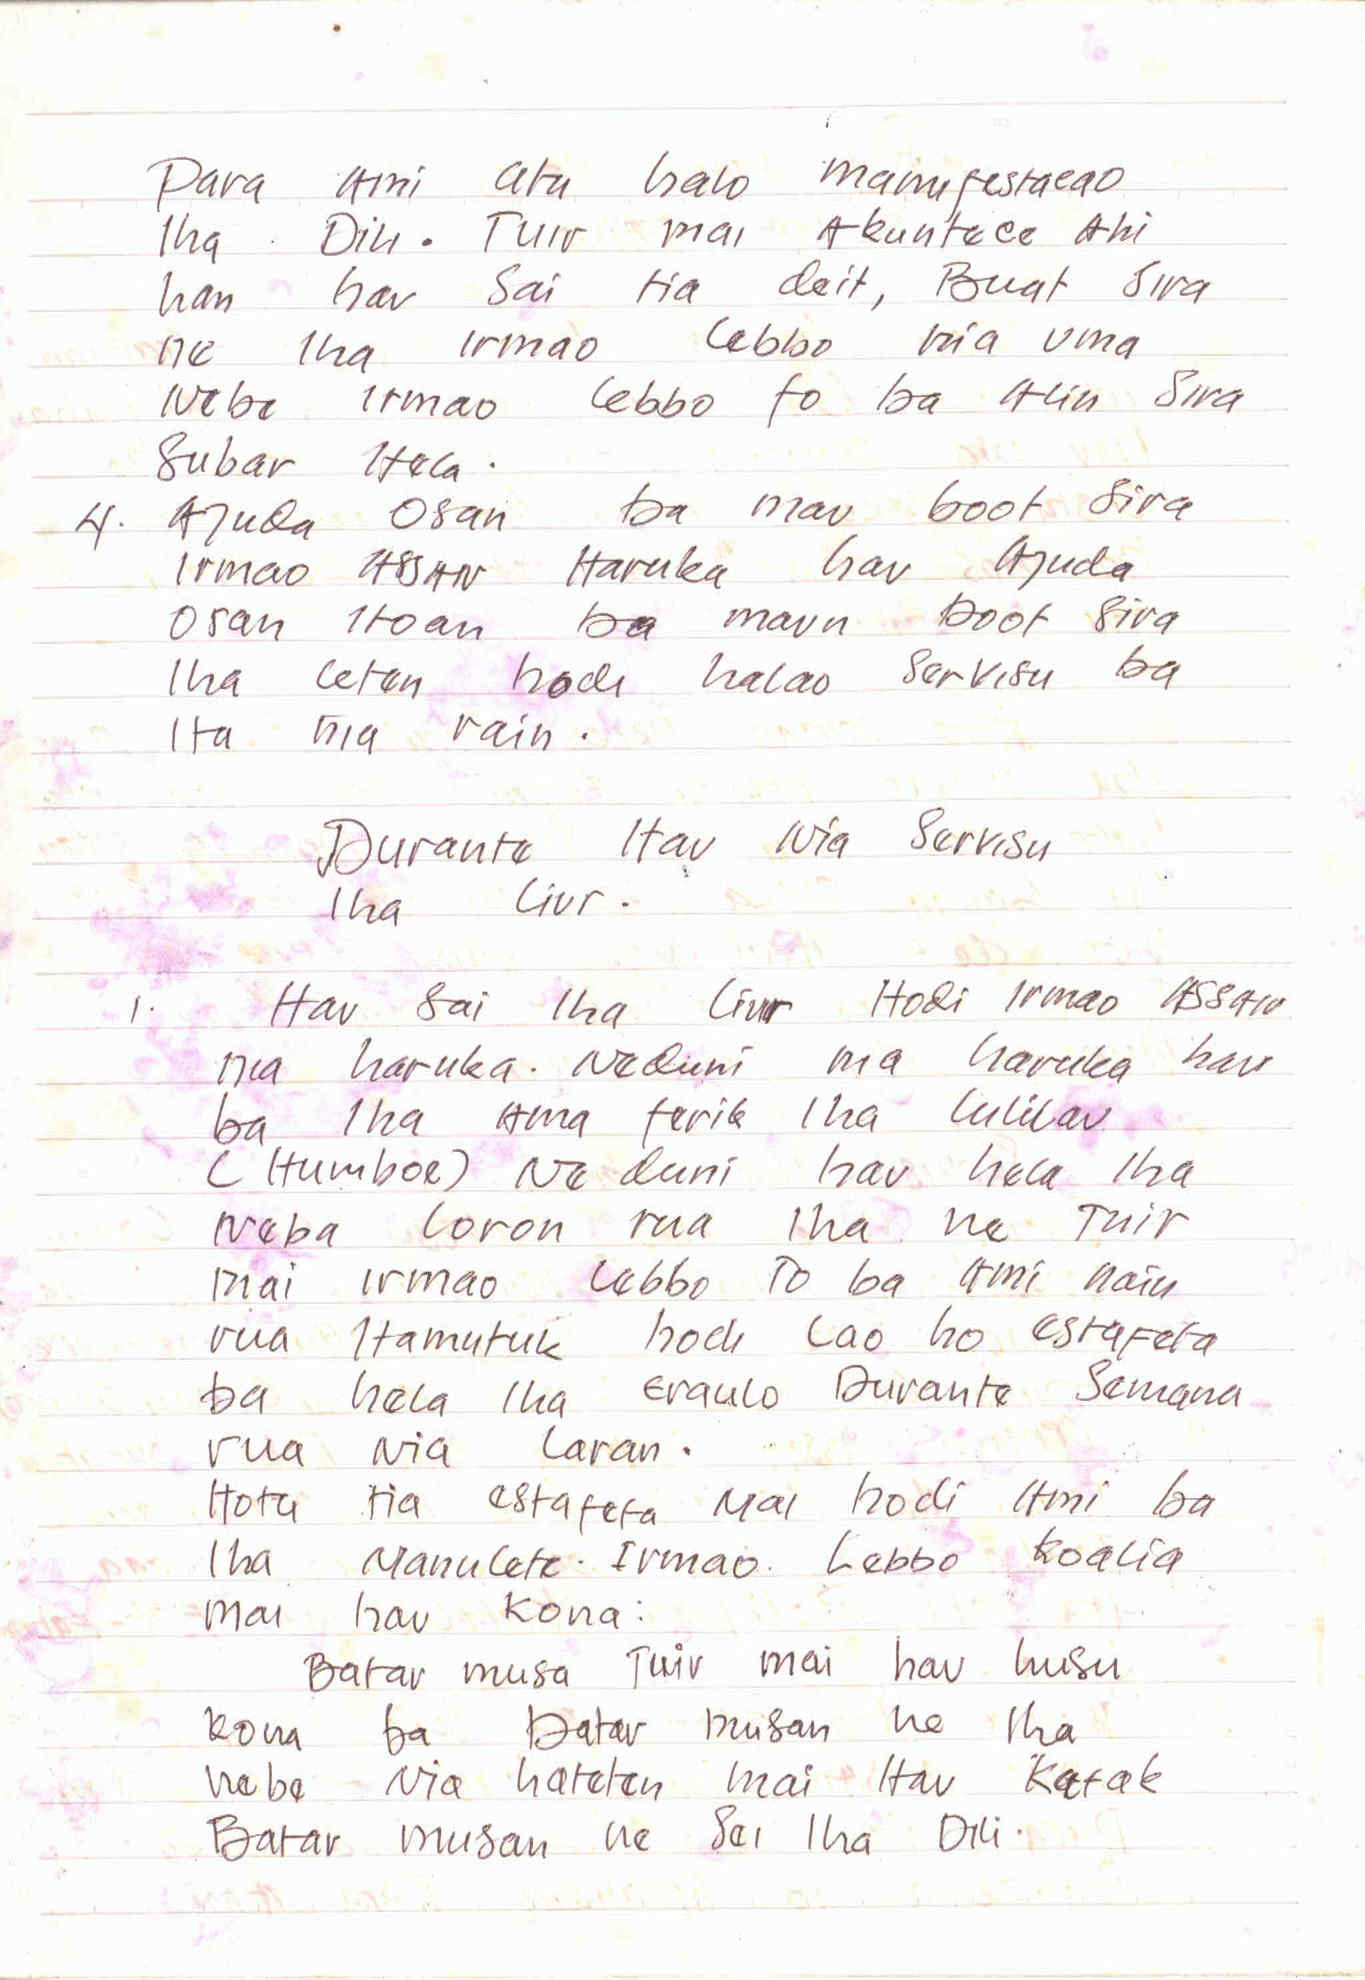 Para Ami atu halo manifestacao
Iha Dili. Tuir mai Akuntece Ahi
han hav Sai tia deit, Buat Sira
ne Iha irmao Lebbo nia uma
Nebe irmao Lebbo fo ba Alin Sira
Subar Hela.
4. Ajuda Osan ba mav boot Sira
Irmao ASSAN Haruka hav Ajuda
Osan Itoan ba maun boot Sira
Iha leten hodi halao Servisu ba
Ita nia rain.
Durante Hav Nia Servisu
Iha Liur.
1. Hav Sai Iha Liur Hodi Irmao ASSAN
nia haruka. Neduni nia haruka hav
ba Iha Ama ferik Iha Lulilav
(Humboe) Ne duni hav hela Iha
Neba Loron rua Iha ne Tuir
mai irmao Lebbo To ba Ami nain
rua Hamutuk hodi Lao ho estafeta
ba hela Iha Eraulo Durante Semana
rua Nia Laran.
Hotu tia estafeta Mai hodi Ami ba
Iha Manulete. Irmao. Lebbo Koalia
mai hav Kona:
Batar musa Tuir mai hav husu
Kona ba Batar musan ne Iha
nebe Nia hateten mai Hav Katak
Batar musan ne Sei Iha Dili.